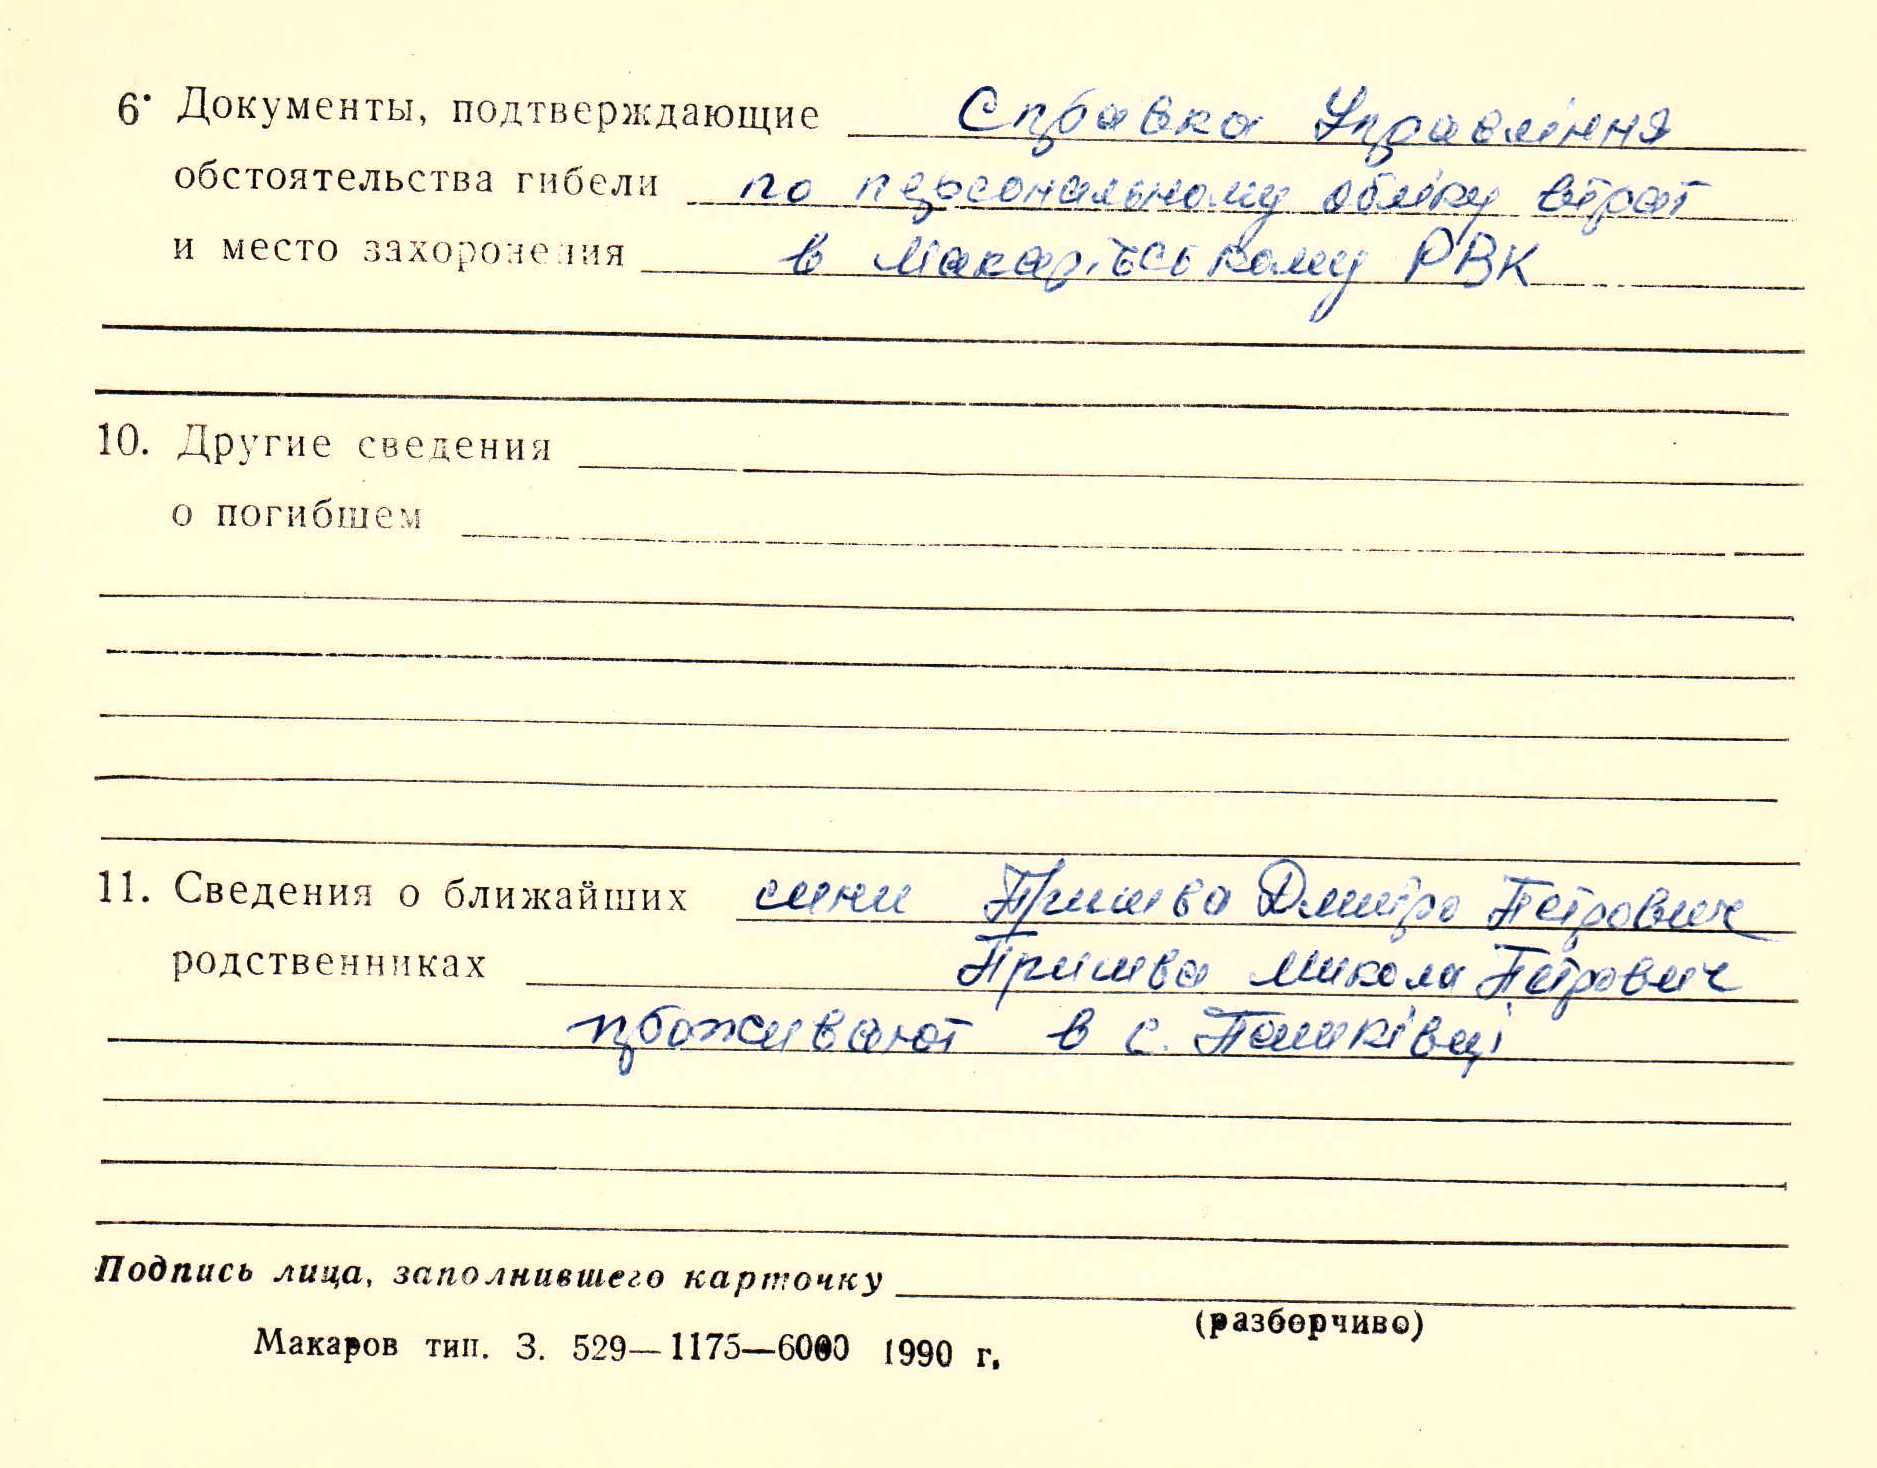 6. Документы, подтверждающие Справка Управління
обстоятельства гибели по персональному обліку втрат
и место захоронения в Макарівському РВК
10. Другие сведения
о погибшем
11. Сведения о ближайших сини Пришва Дмитро Петрович
родственниках Пришва Микола Петрович
проживают в с. Пашківці
Подпись лица, заполнившего карточку
(разборчиво)
Макаров тип. З. 529—1175—6000 1990 г.